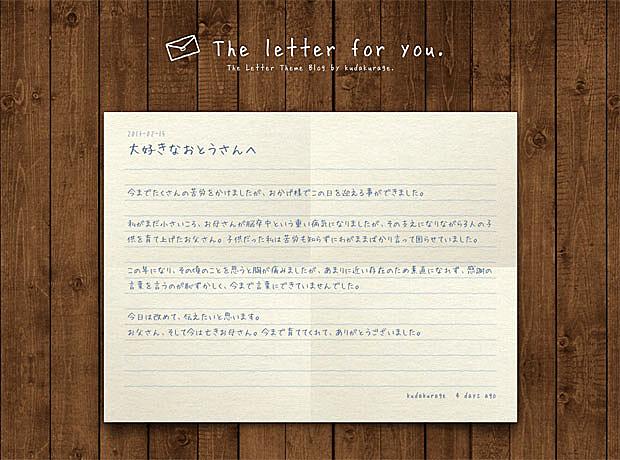 The letter for you.
The Letter Theme Blog by kudakurage.
2011-02-15
大好きなおとうさんへ
今までたくさんの苦労をかけましたが、おかげ様でこの日を迎える事ができました。
私がまだ小さいころ、お母さんが脳卒中という重い病気になりましたが、その支えになりながら3人の子
供を育て上げたお父さん。子供だった私は苦労も知らずにわがままばかり言って困らせていました。
この年になり、その頃のことを思うと胸が痛みましたが、あまりに近い存在のため素直になれず、感謝の
言葉を言うのが恥ずかしく、今まで言葉にできていませんでした。
今日は改めて、伝えたいと思います。
お父さん、そして今は亡きお母さん。今まで育ててくれて、ありがとうございました。
kudakurage 4 days ago